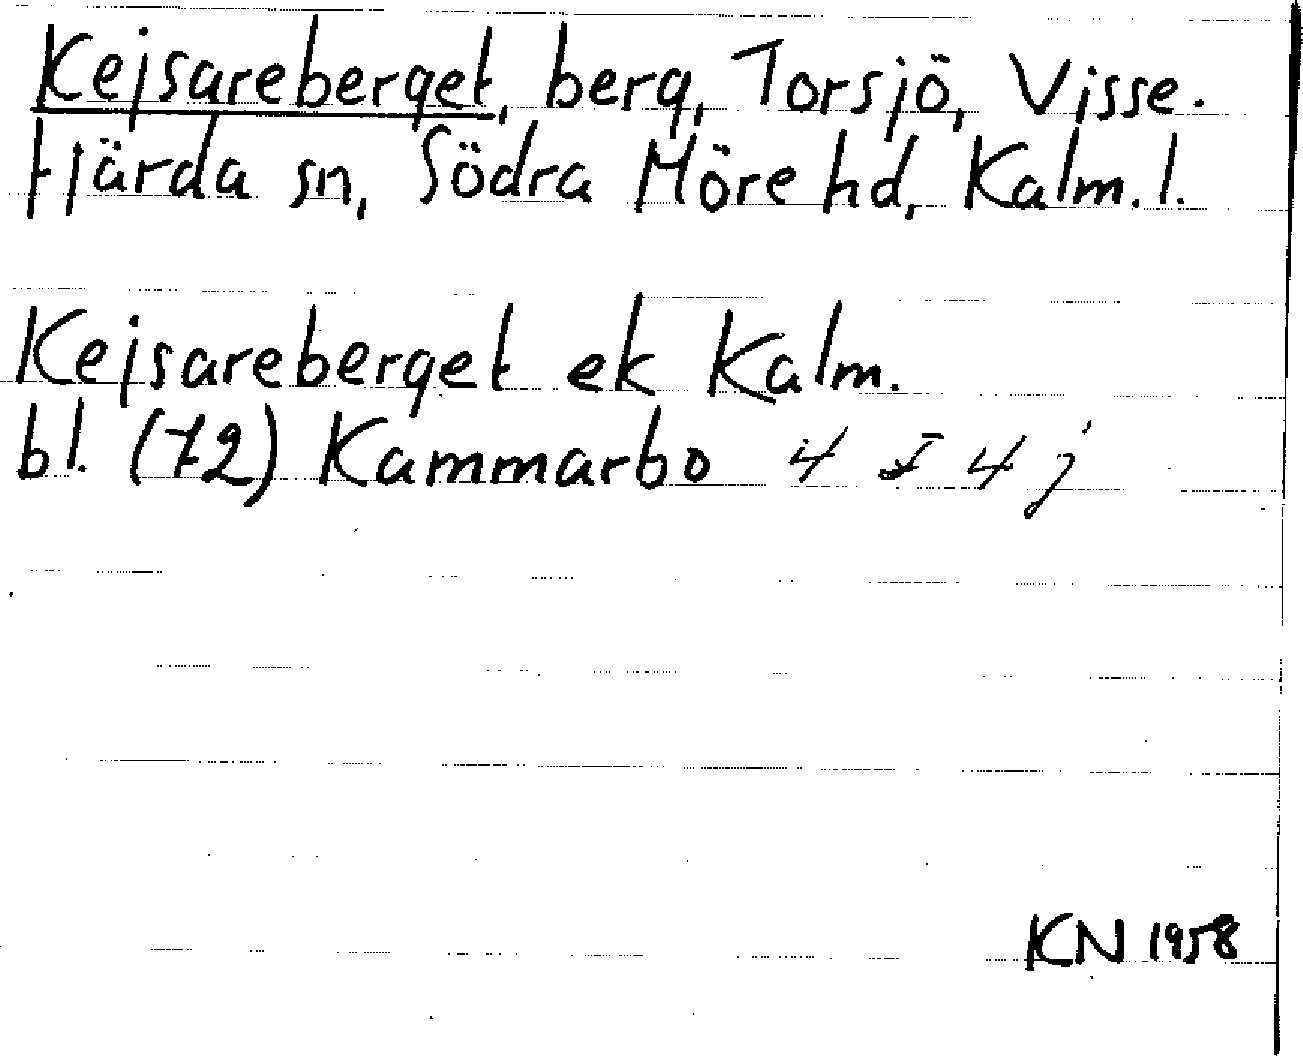 Kejsareberget, berg, Torsjö, Visse-
fjärda sn, Södra Möre hd, Kalm. l.
Kejsareberget ek Kalm.
bl. (72) Kammarbo 4 I 4 j
KN 1958